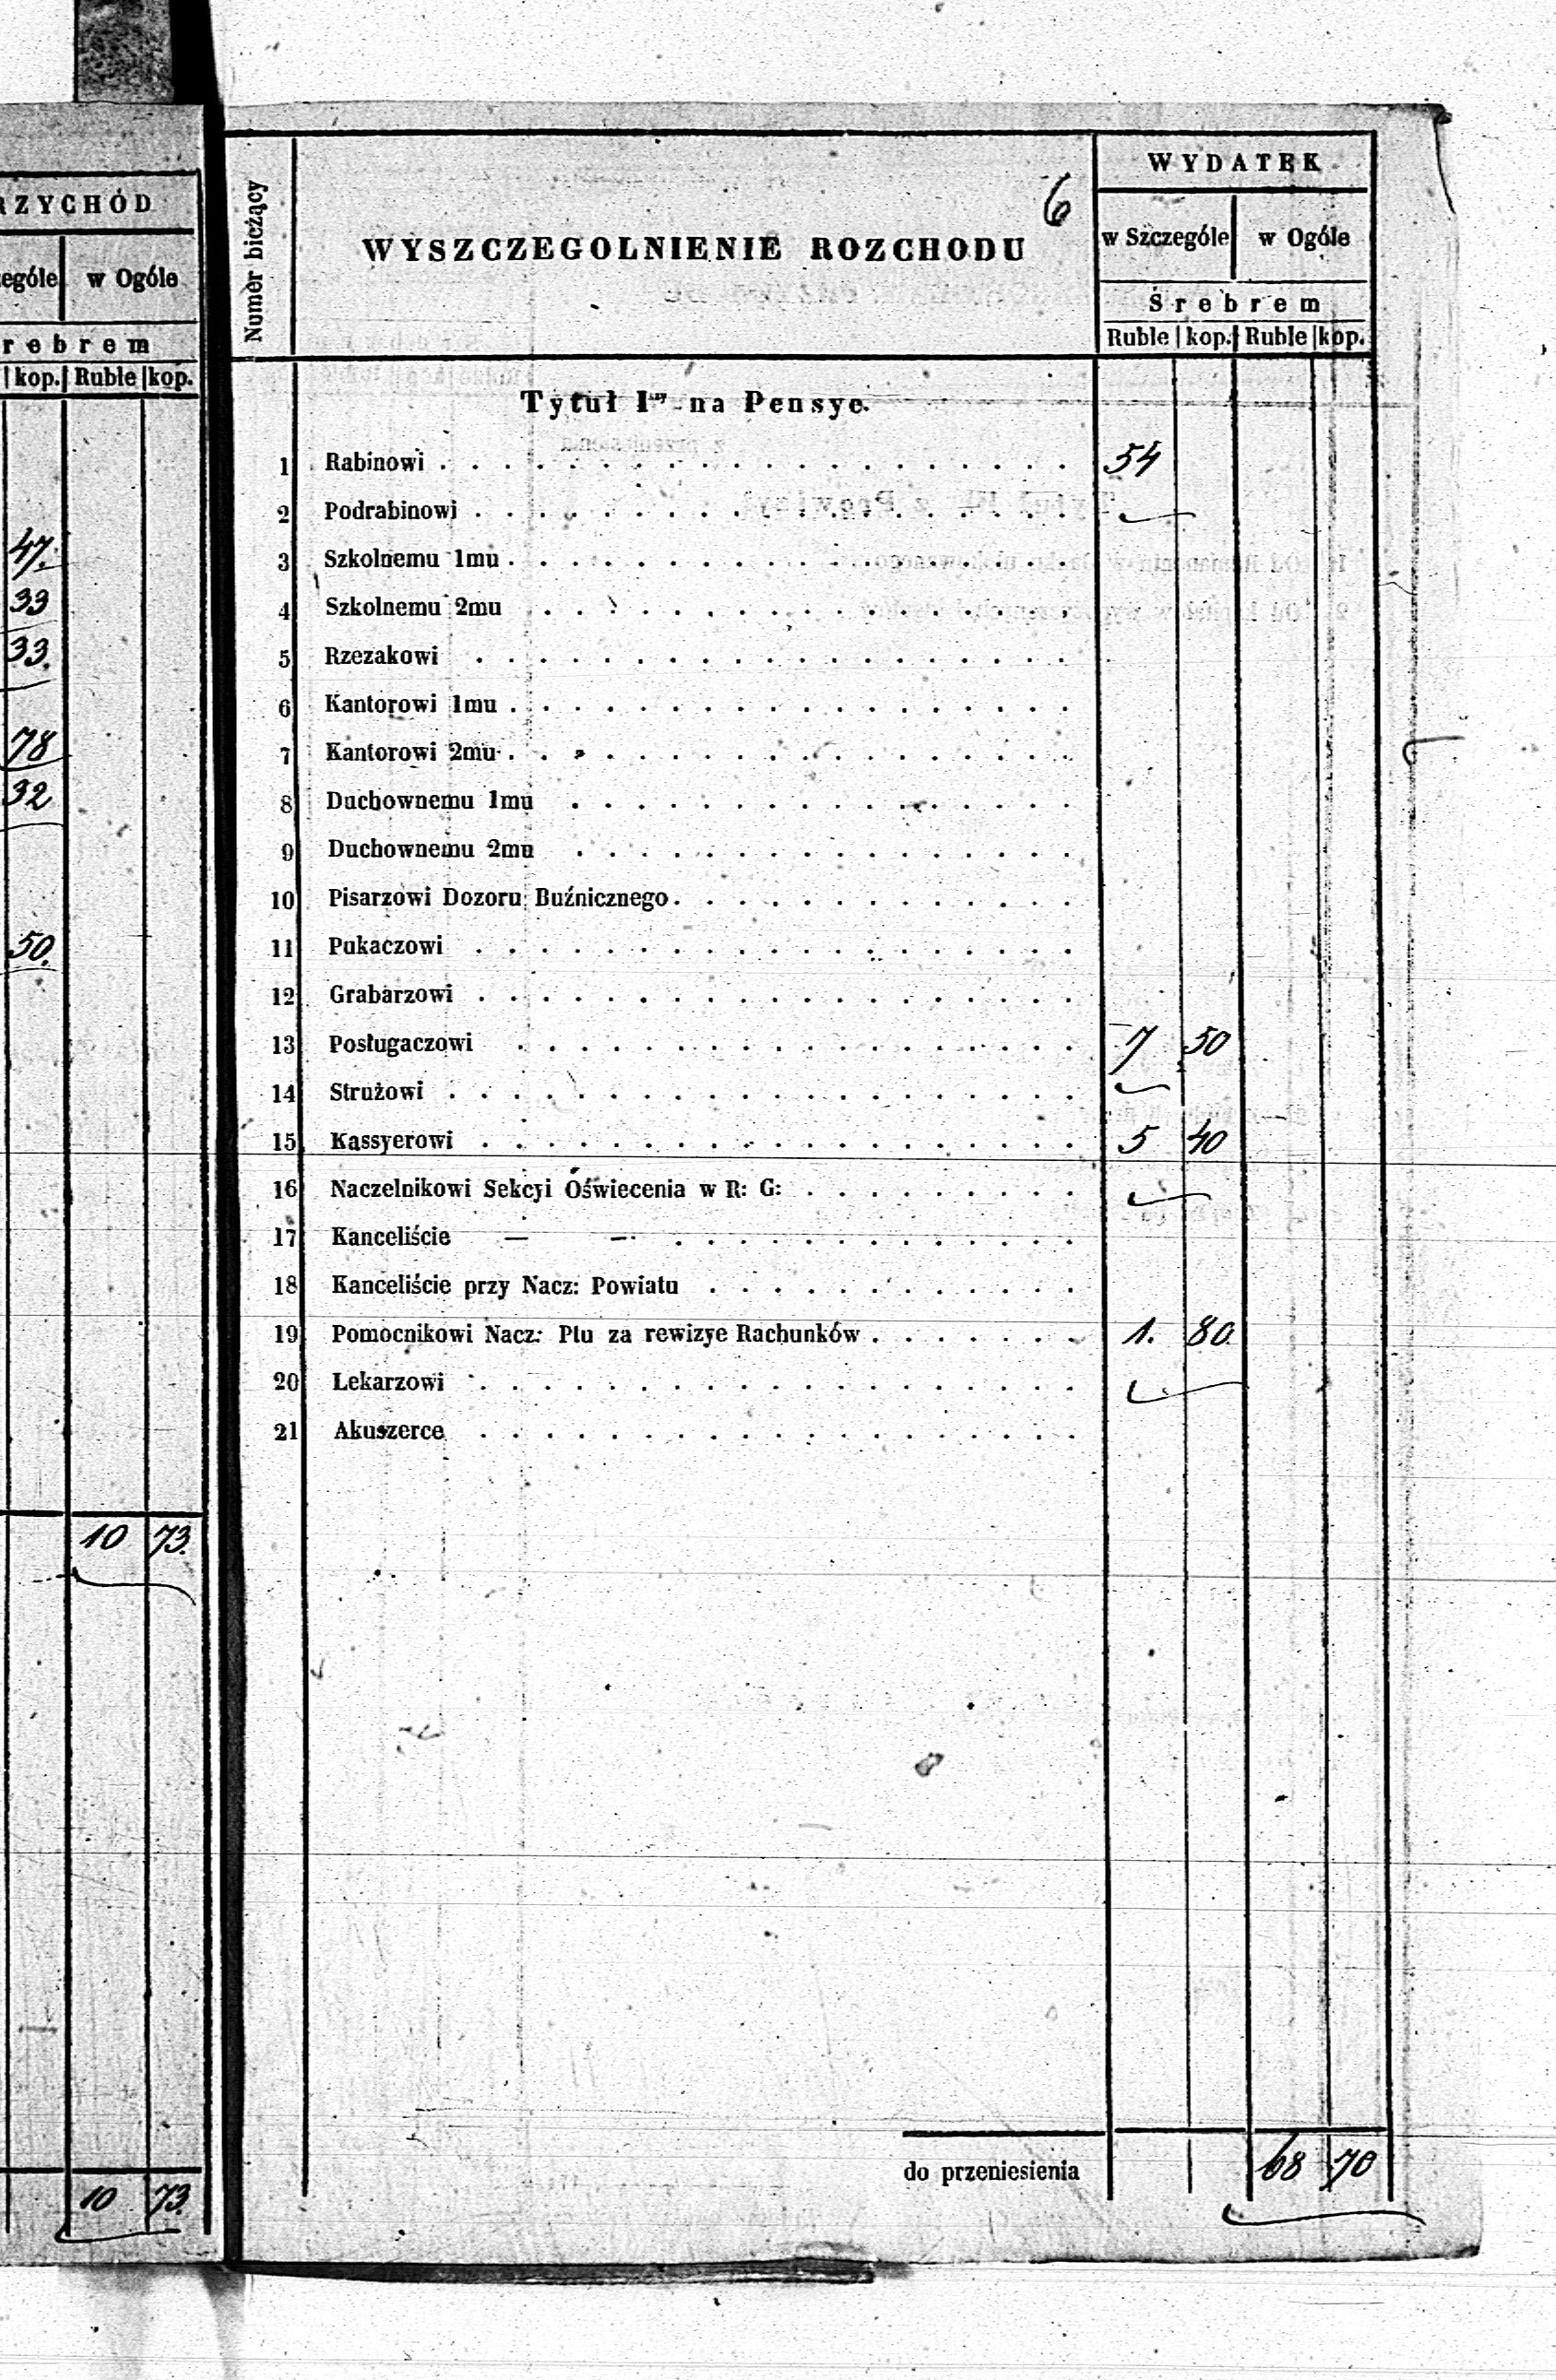 RZYCHÓD
ególe w Ogóle
rebrem
kop. Ruble kop.
47.
33
33.
78
32
50.
10 73.
10 73.
6
Numer bieżący
WYSZCZEGOLNIENIE ROZCHODU
WYDATEK
w Szczególe w Ogóle
Srebrem
Ruble kop. Ruble kop.
Tytuł Iszy na Pensye.
1 Rabinowi . . . . . . . . . . . . . . . . . . . . 54
2 Podrabinowi . . . . . . . . . . . . . . . . . . .
3 Szkolnemu 1mu . . . . . . . . . . . . . . . . . .
4 Szkolnemu 2mu . . . . . . . . . . . . . . . . .
5 Rzezakowi . . . . . . . . . . . . . . . . . . .
6 Kantorowi 1mu . . . . . . . . . . . . . . . . . .
7 Kantorowi 2mu . . . . . . . . . . . . . . . . . .
8 Duchownemu 1mu . . . . . . . . . . . . . . . .
9 Duchownemu 2mu . . . . . . . . . . . . . . . .
10 Pisarzowi Dozoru Buźnicznego . . . . . . . . . . . . .
11 Pukaczowi . . . . . . . . . . . . . . . . . . .
12 Grabarzowi . . . . . . . . . . . . . . . . . . .
13 Posługaczowi . . . . . . . . . . . . . . . . . . 7 50
14 Strużowi . . . . . . . . . . . . . . . . . . . .
15 Kassyerowi . . . . . . . . . . . . . . . . . . . 5 40
16 Naczelnikowi Sekcyi Oświecenia w R: G: . . . . . . . . .
17 Kanceliście — — . . . . . . . . . . . . .
18 Kanceliście przy Nacz: Powiatu . . . . . . . . . . . .
19 Pomocnikowi Nacz: Ptu za rewizye Rachunków . . . . . . . 1. 80.
20 Lekarzowi . . . . . . . . . . . . . . . . . . .
21 Akuszerce . . . . . . . . . . . . . . . . . . .
do przeniesienia 68 70